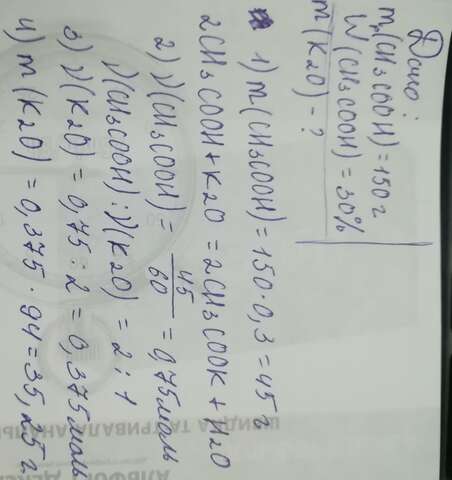 Дано:
mр(CH3COOH)=150г
W(CH3COOH)=30%
m(K2O)-?
1) m(CH3COOH)=150·0,3=45г
2CH3COOH+K2O=2CH3COOK+H2O
2) ν(CH3COOH)=45/60=0,75моль
ν(CH3COOH):ν(K2O)=2:1
3) ν(K2O)=0,75:2=0,375моль
4) m(K2O)=0,375·94=35,25г
ШВИДКА ТА ТРИВАЛА